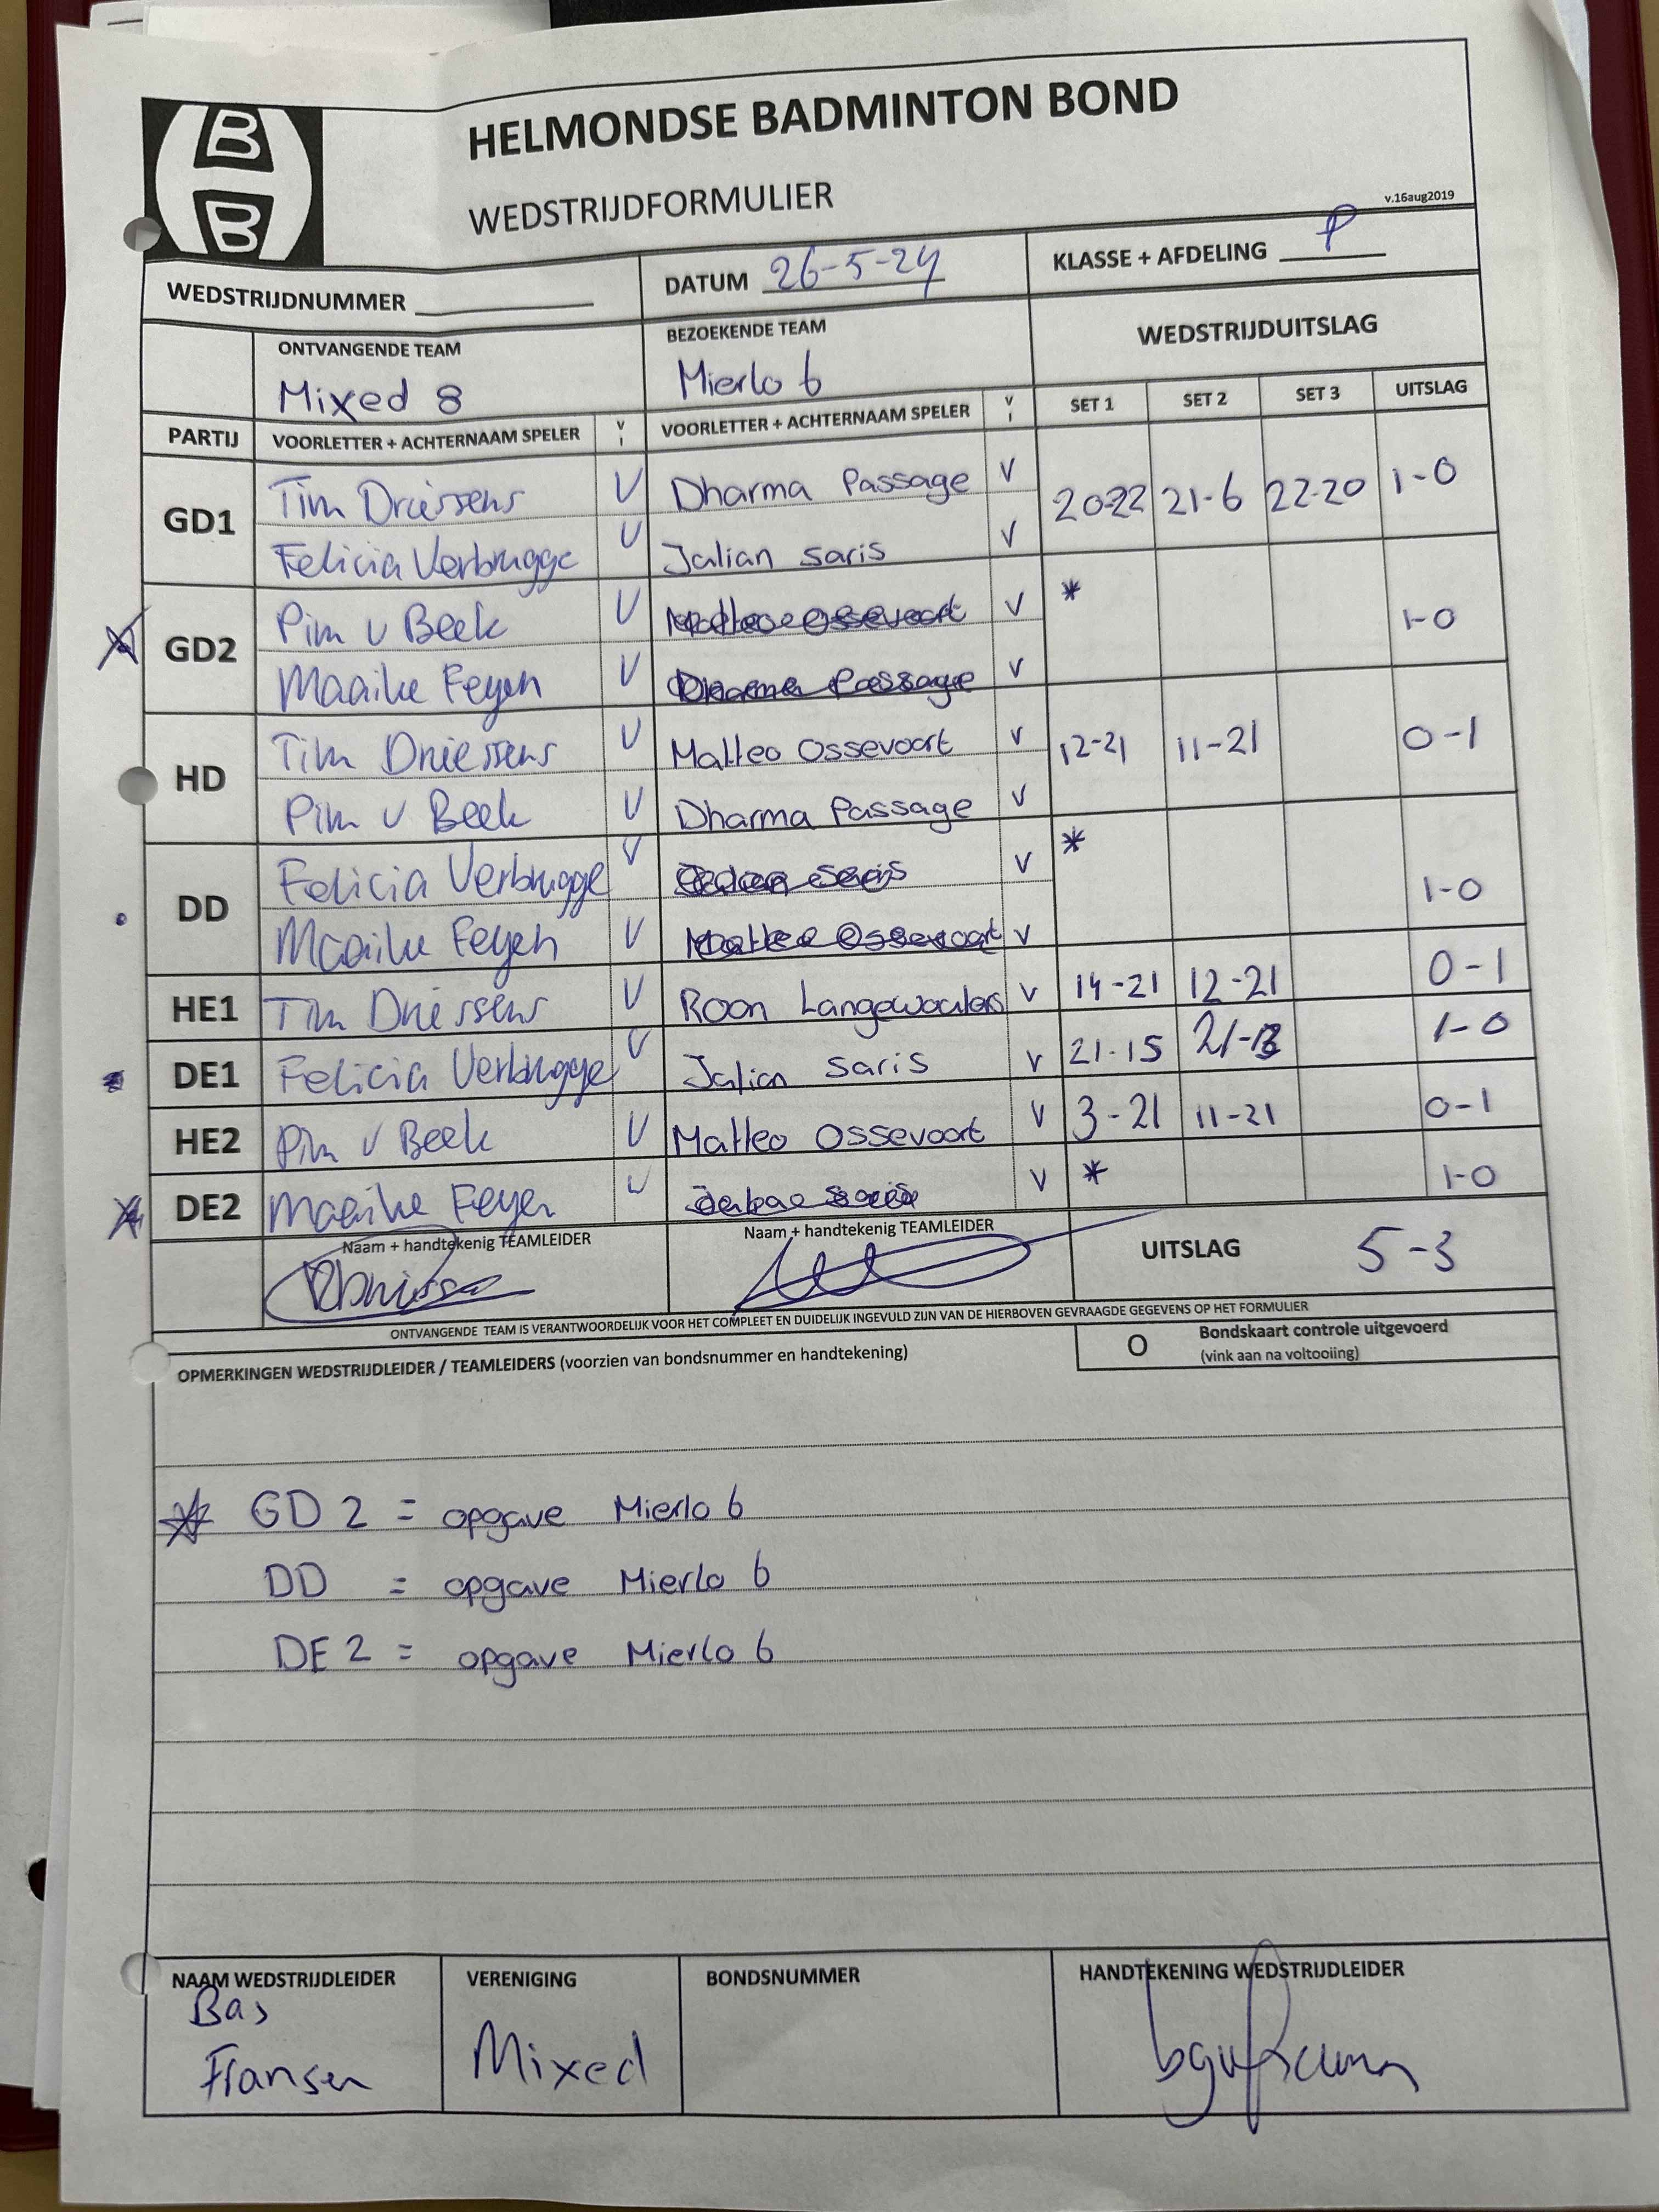 B
B
HELMONDSE BADMINTON BOND
WEDSTRIJDFORMULIER
v.16aug2019
WEDSTRIJDNUMMER DATUM 26-5-24 KLASSE + AFDELING P
ONTVANGENDE TEAM BEZOEKENDE TEAM WEDSTRIJDUITSLAG
Mixed 8 Mierlo 6
PARTIJ VOORLETTER + ACHTERNAAM SPELER V I VOORLETTER + ACHTERNAAM SPELER V I SET 1 SET 2 SET 3 UITSLAG
GD1 Tim Driessens V Dharma Passage V 20-22 21-6 22-20 1-0
Felicia Verbrugge V Jalian Saris V
GD2 Pim v Beek V Matteo Ossevoort V * 1-0
Maaike Feyen V Dharma Passage V
HD Tim Driessens V Matteo Ossevoort V 12-21 11-21 0-1
Pim v Beek V Dharma Passage V
DD Felicia Verbrugge V Saris V * 1-0
Maaike Feyen V Matteo Ossevoort V
HE1 Tim Driessens V Roan Langewouters V 14-21 12-21 0-1
DE1 Felicia Verbrugge V Jalian Saris V 21-15 21-13 1-0
HE2 Pim v Beek V Matteo Ossevoort V 3-21 11-21 0-1
DE2 Maaike Feyen V Saris V * 1-0
Naam + handtekenig TEAMLEIDER Naam + handtekenig TEAMLEIDER UITSLAG 5-3
ONTVANGENDE TEAM IS VERANTWOORDELIJK VOOR HET COMPLEET EN DUIDELIJK INGEVULD ZIJN VAN DE HIERBOVEN GEVRAAGDE GEGEVENS OP HET FORMULIER
OPMERKINGEN WEDSTRIJDLEIDER / TEAMLEIDERS (voorzien van bondsnummer en handtekening) O Bondskaart controle uitgevoerd
(vink aan na voltooiing)
* GD 2 = opgave Mierlo 6
DD = opgave Mierlo 6
DE 2 = opgave Mierlo 6
NAAM WEDSTRIJDLEIDER VERENIGING BONDSNUMMER HANDTEKENING WEDSTRIJDLEIDER
Bas
Fransen Mixed